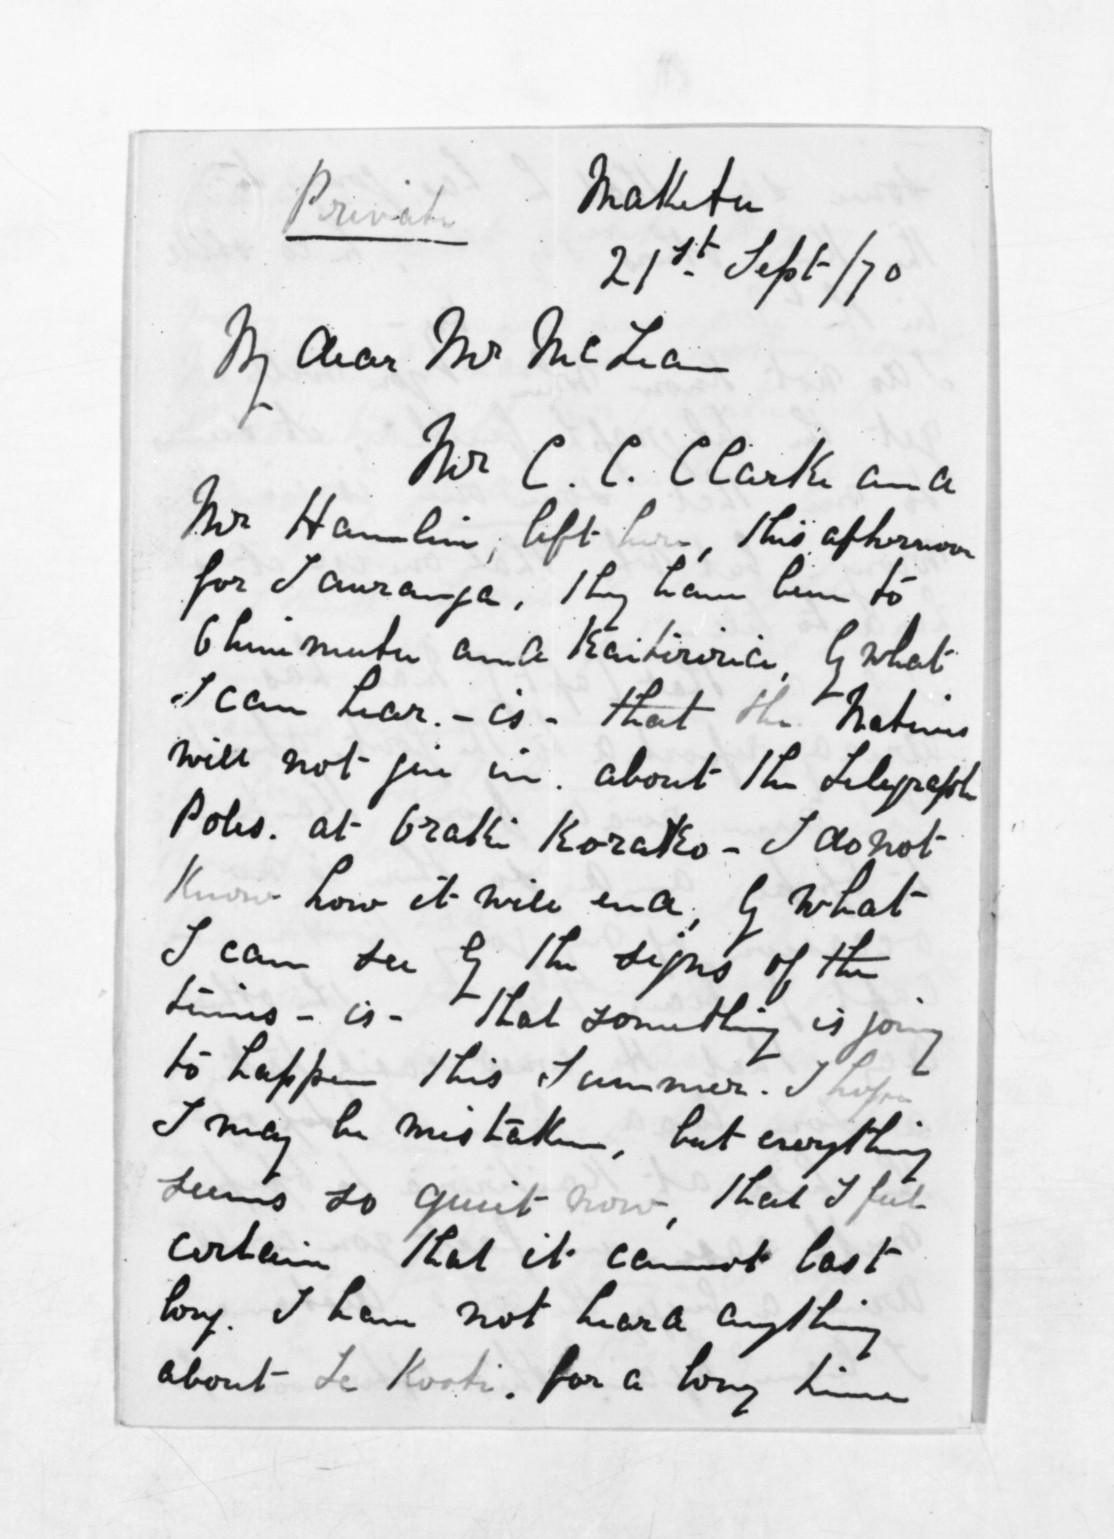 Private
Maketu
21st Sept /70
My dear Mr McLean
Mr C. C. Clarke and
Mr Hamlin, left here, this afternoon
for Tauranga, they have been to
Ohinimutu and Kaiteriria, by what
I can hear. - is - that the Natives
will not give in. about the Telegraph
Poles. at Oraki Korako - I do not
know how it will end, by what
I can see by the signs of the
times - is - that something is going
to happen this Summer. I hope
I may be mistaken, but everything
seems so quiet now, that I feel
certain that it cannot last
long. I have not heard anything
about Te Kooti. for a long time